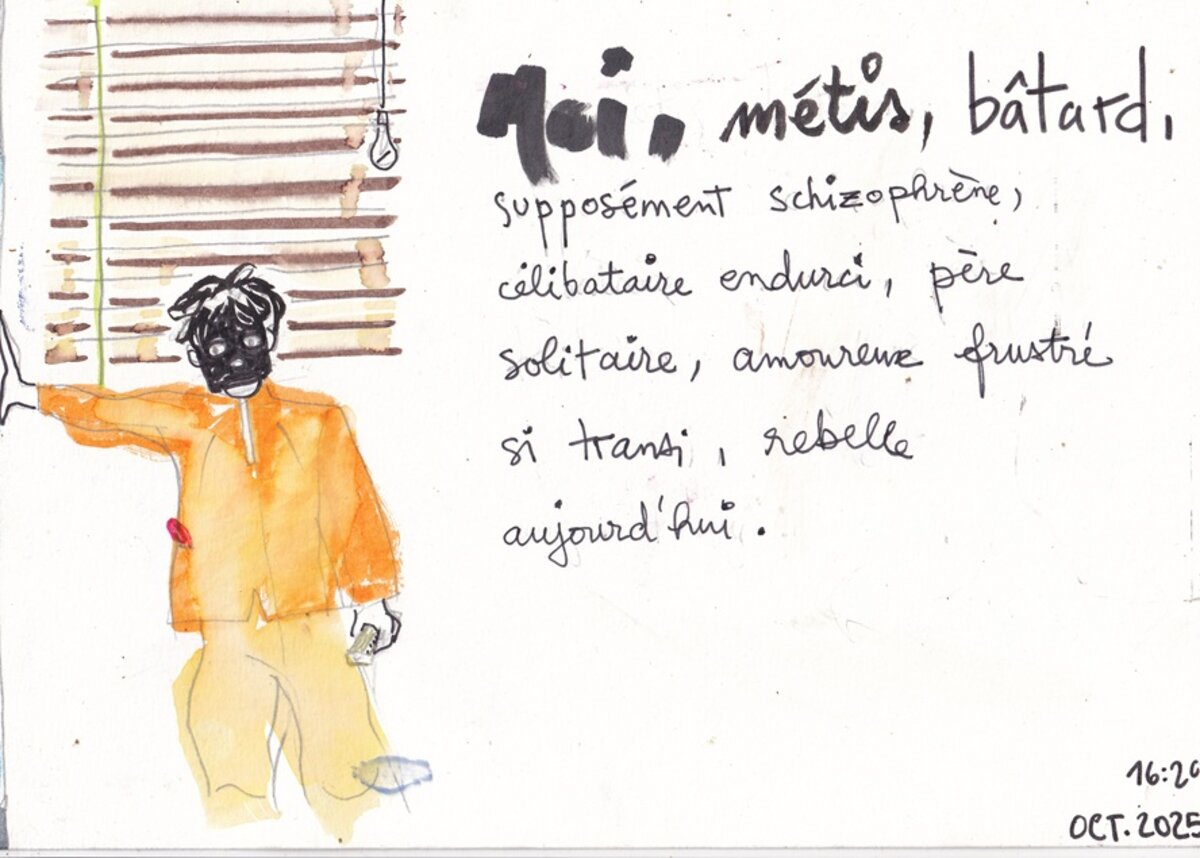 Moi, métis, bâtard,
supposément schizophrène,
célibataire endurci, père
solitaire, amoureux frustré
si transi, rebelle
aujourd'hui.
OCT. 2025